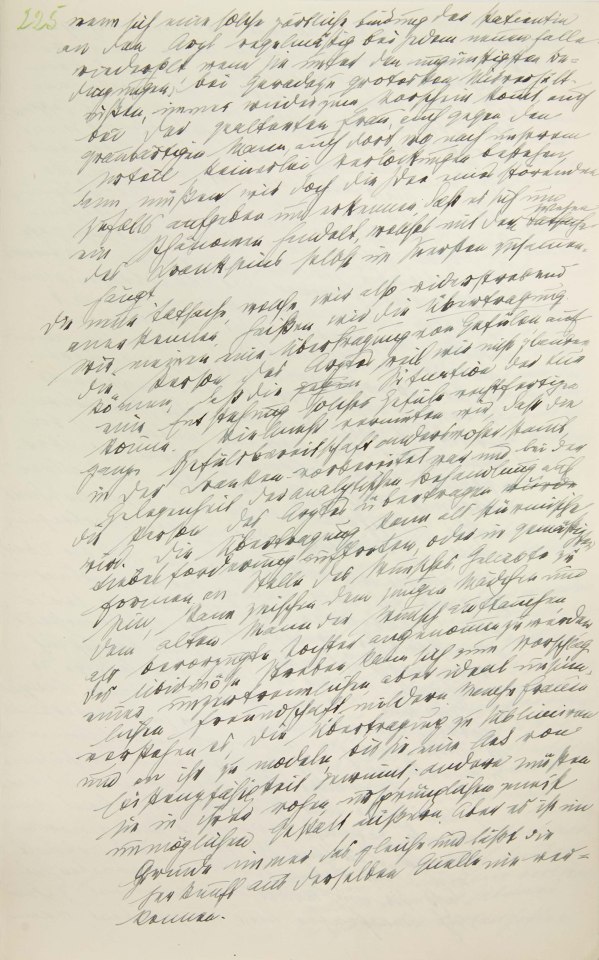 225
wenn sich eine solche zärtliche Bindung des Patientin
an den Arzt regelmäßig bei jedem neuen Falle
wiederholt, wenn sie unter den ungünstigsten Be-
dingungen, bei geradezu grotesken Mißverhält-
nissen, immer wieder zum Vorschein kommt, auch
bei der gealterten Frau, auch gegen den
graubärtigen Mann, auch dort wo nach unserem
Urteil keinerlei Verlockungen bestehen,
dann müssen wir doch die Idee eines störenden
Zufalls aufgeben und erkennen daß es sich um
ein Phänomen handelt, welches mit dem Wesen
des Krankseins selbst im Innersten zusammen-
hängt.
Die neue Tatsache, welche wir also widerstrebend
anerkennen, heißen wir die Übertragung
Wir meinen eine Übertragung von Gefühlen auf
die Person des Arztes weil wir nicht glauben
können, daß die Situation der Kur
eine Entstehung solcher Gefühle rechtfertigen
könne. Vielmehr vermuten wir, daß die
ganze Gefühlsbereitschaft anderswoher stammt,
in der Kranken vorbereitet war und bei der
Gelegenheit der analytischen Behandlung auf
die Person des Arztes übertragen
wird. Die Übertragung kann als stürmische
Liebesforderung auftreten, oder in gemäßigteren
Formen, an Stelle des Wunsches, Geliebte zu
sein, kann zwischen dem jungen Mädchen und
dem alten Mann der Wunsch auftauchen
als bevorzugte Tochter angenommen zu werden
das libidinöse Streben kann sich zum Vorschlag
einer unzertrennlichen aber ideal unsinn-
lichen Freundschaft mildern. Manche Frauen
verstehen es, die Übertragung zu sublimieren
und an ihr zu modeln, bis sie eine Art von
Existenzfähigkeit gewinnt, andere müssen
sie in ihrer rohen, ursprünglichen, meist
unmöglichen Gestalt äußern. Aber es ist im
Grunde immer das gleiche und läßt die
Herkunft aus derselben Quelle nie ver-
kennen.